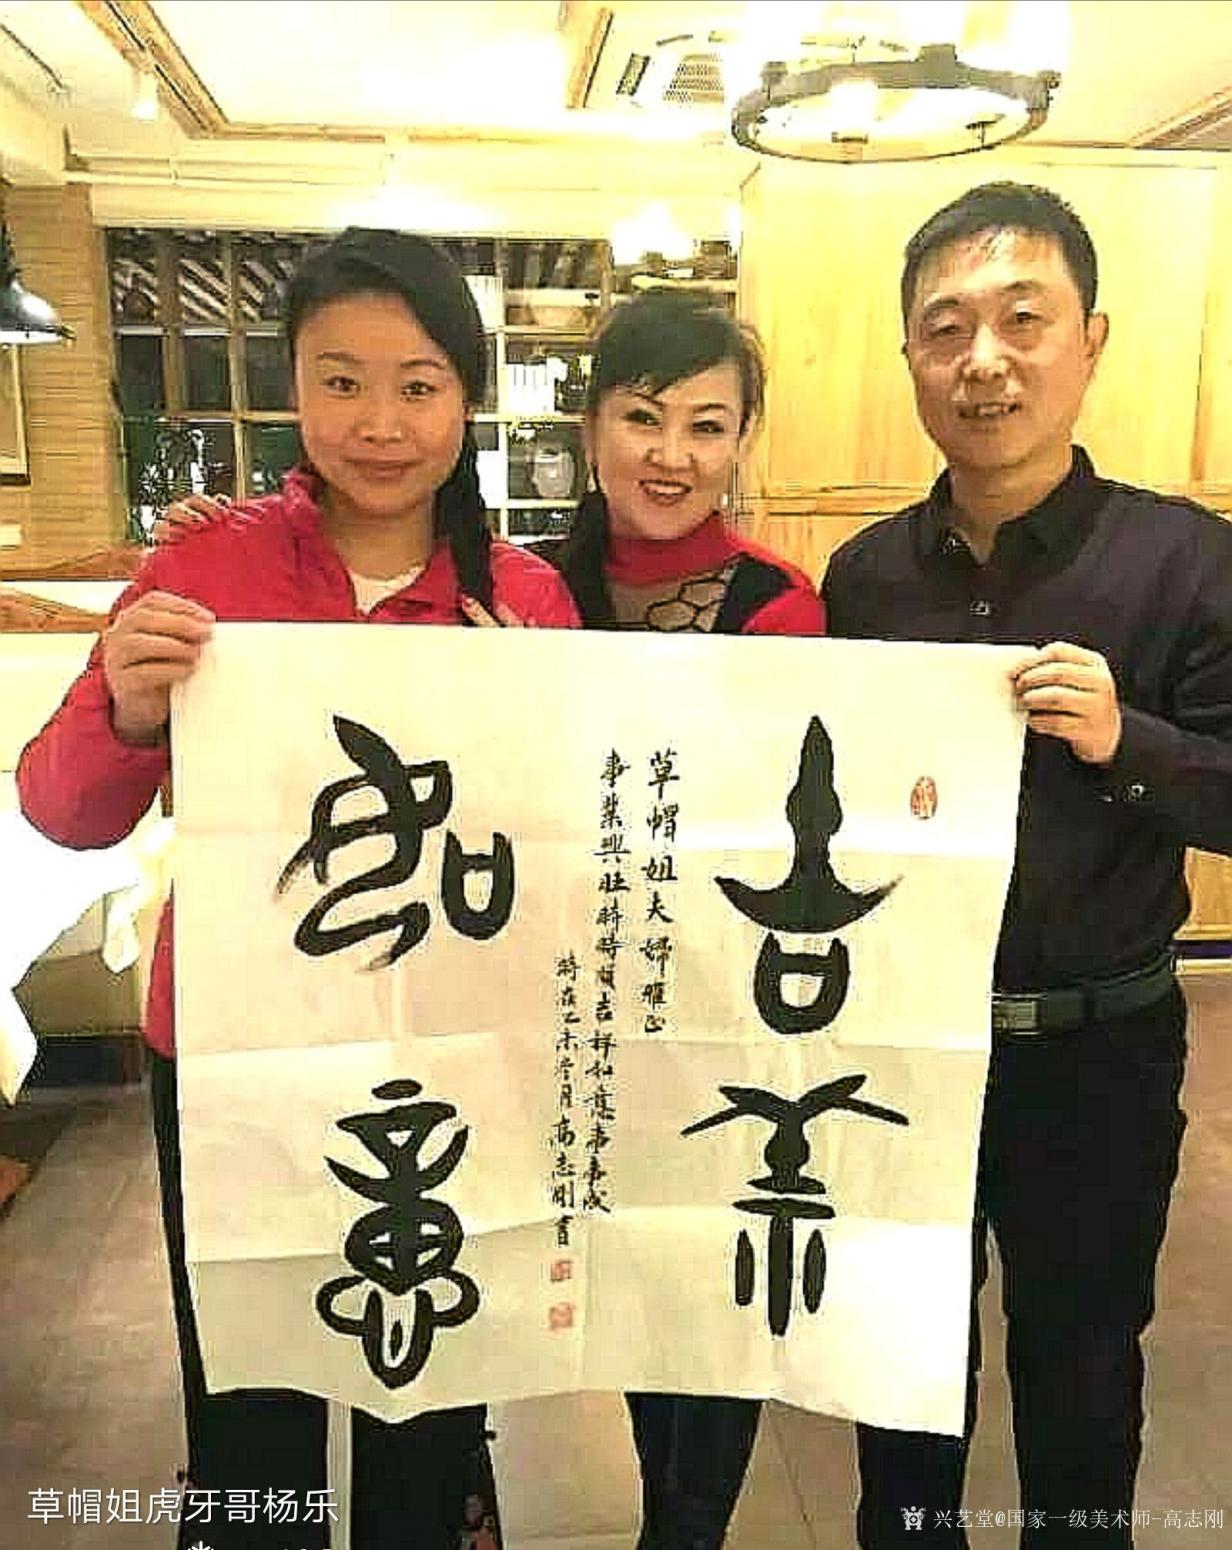 吉祥
如意
草帽姐夫婦雅正
事業興旺時時有吉祥和意事事成
時在乙未冬月高志刚書
草帽姐虎牙哥杨乐
兴艺堂@国家一级美术师-高志刚